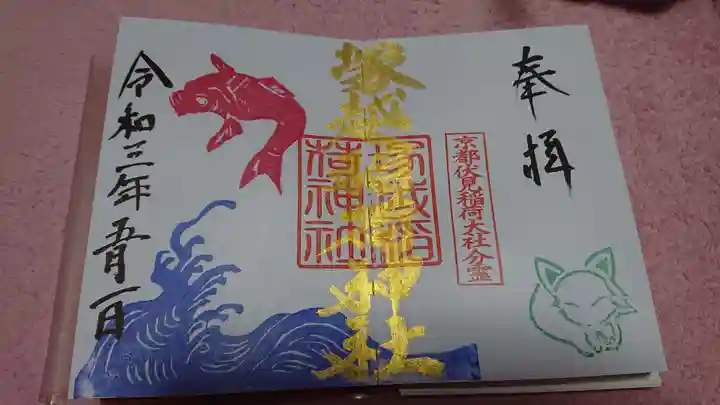 奉拝
京都伏見稲荷大社分霊
塚越稲荷神社
塚越稲荷神社
令和三年五月一日